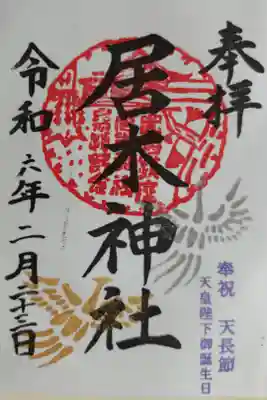 奉拝
居木神社
令和六年二月二十三日
奉祝 天長節
天皇陛下御誕生日